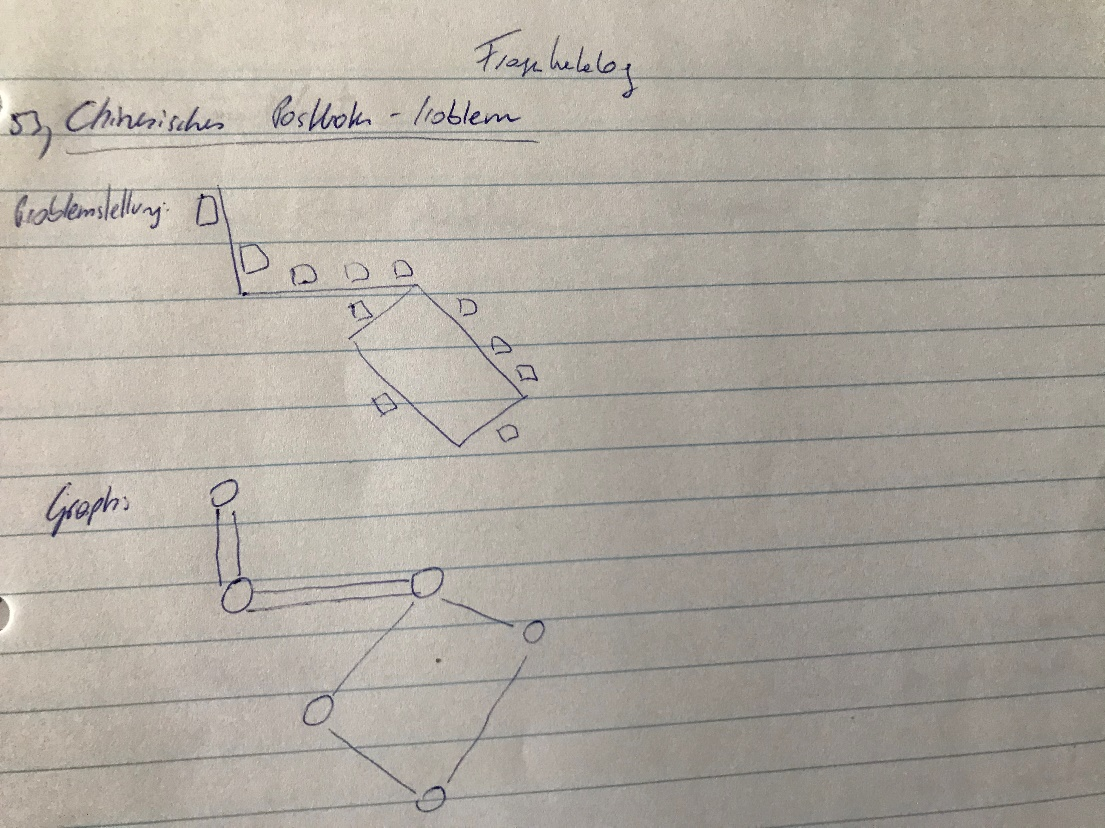 Fragekatalog
53, Chinesisches Postboten-Problem
Problemstellung:
Graph: